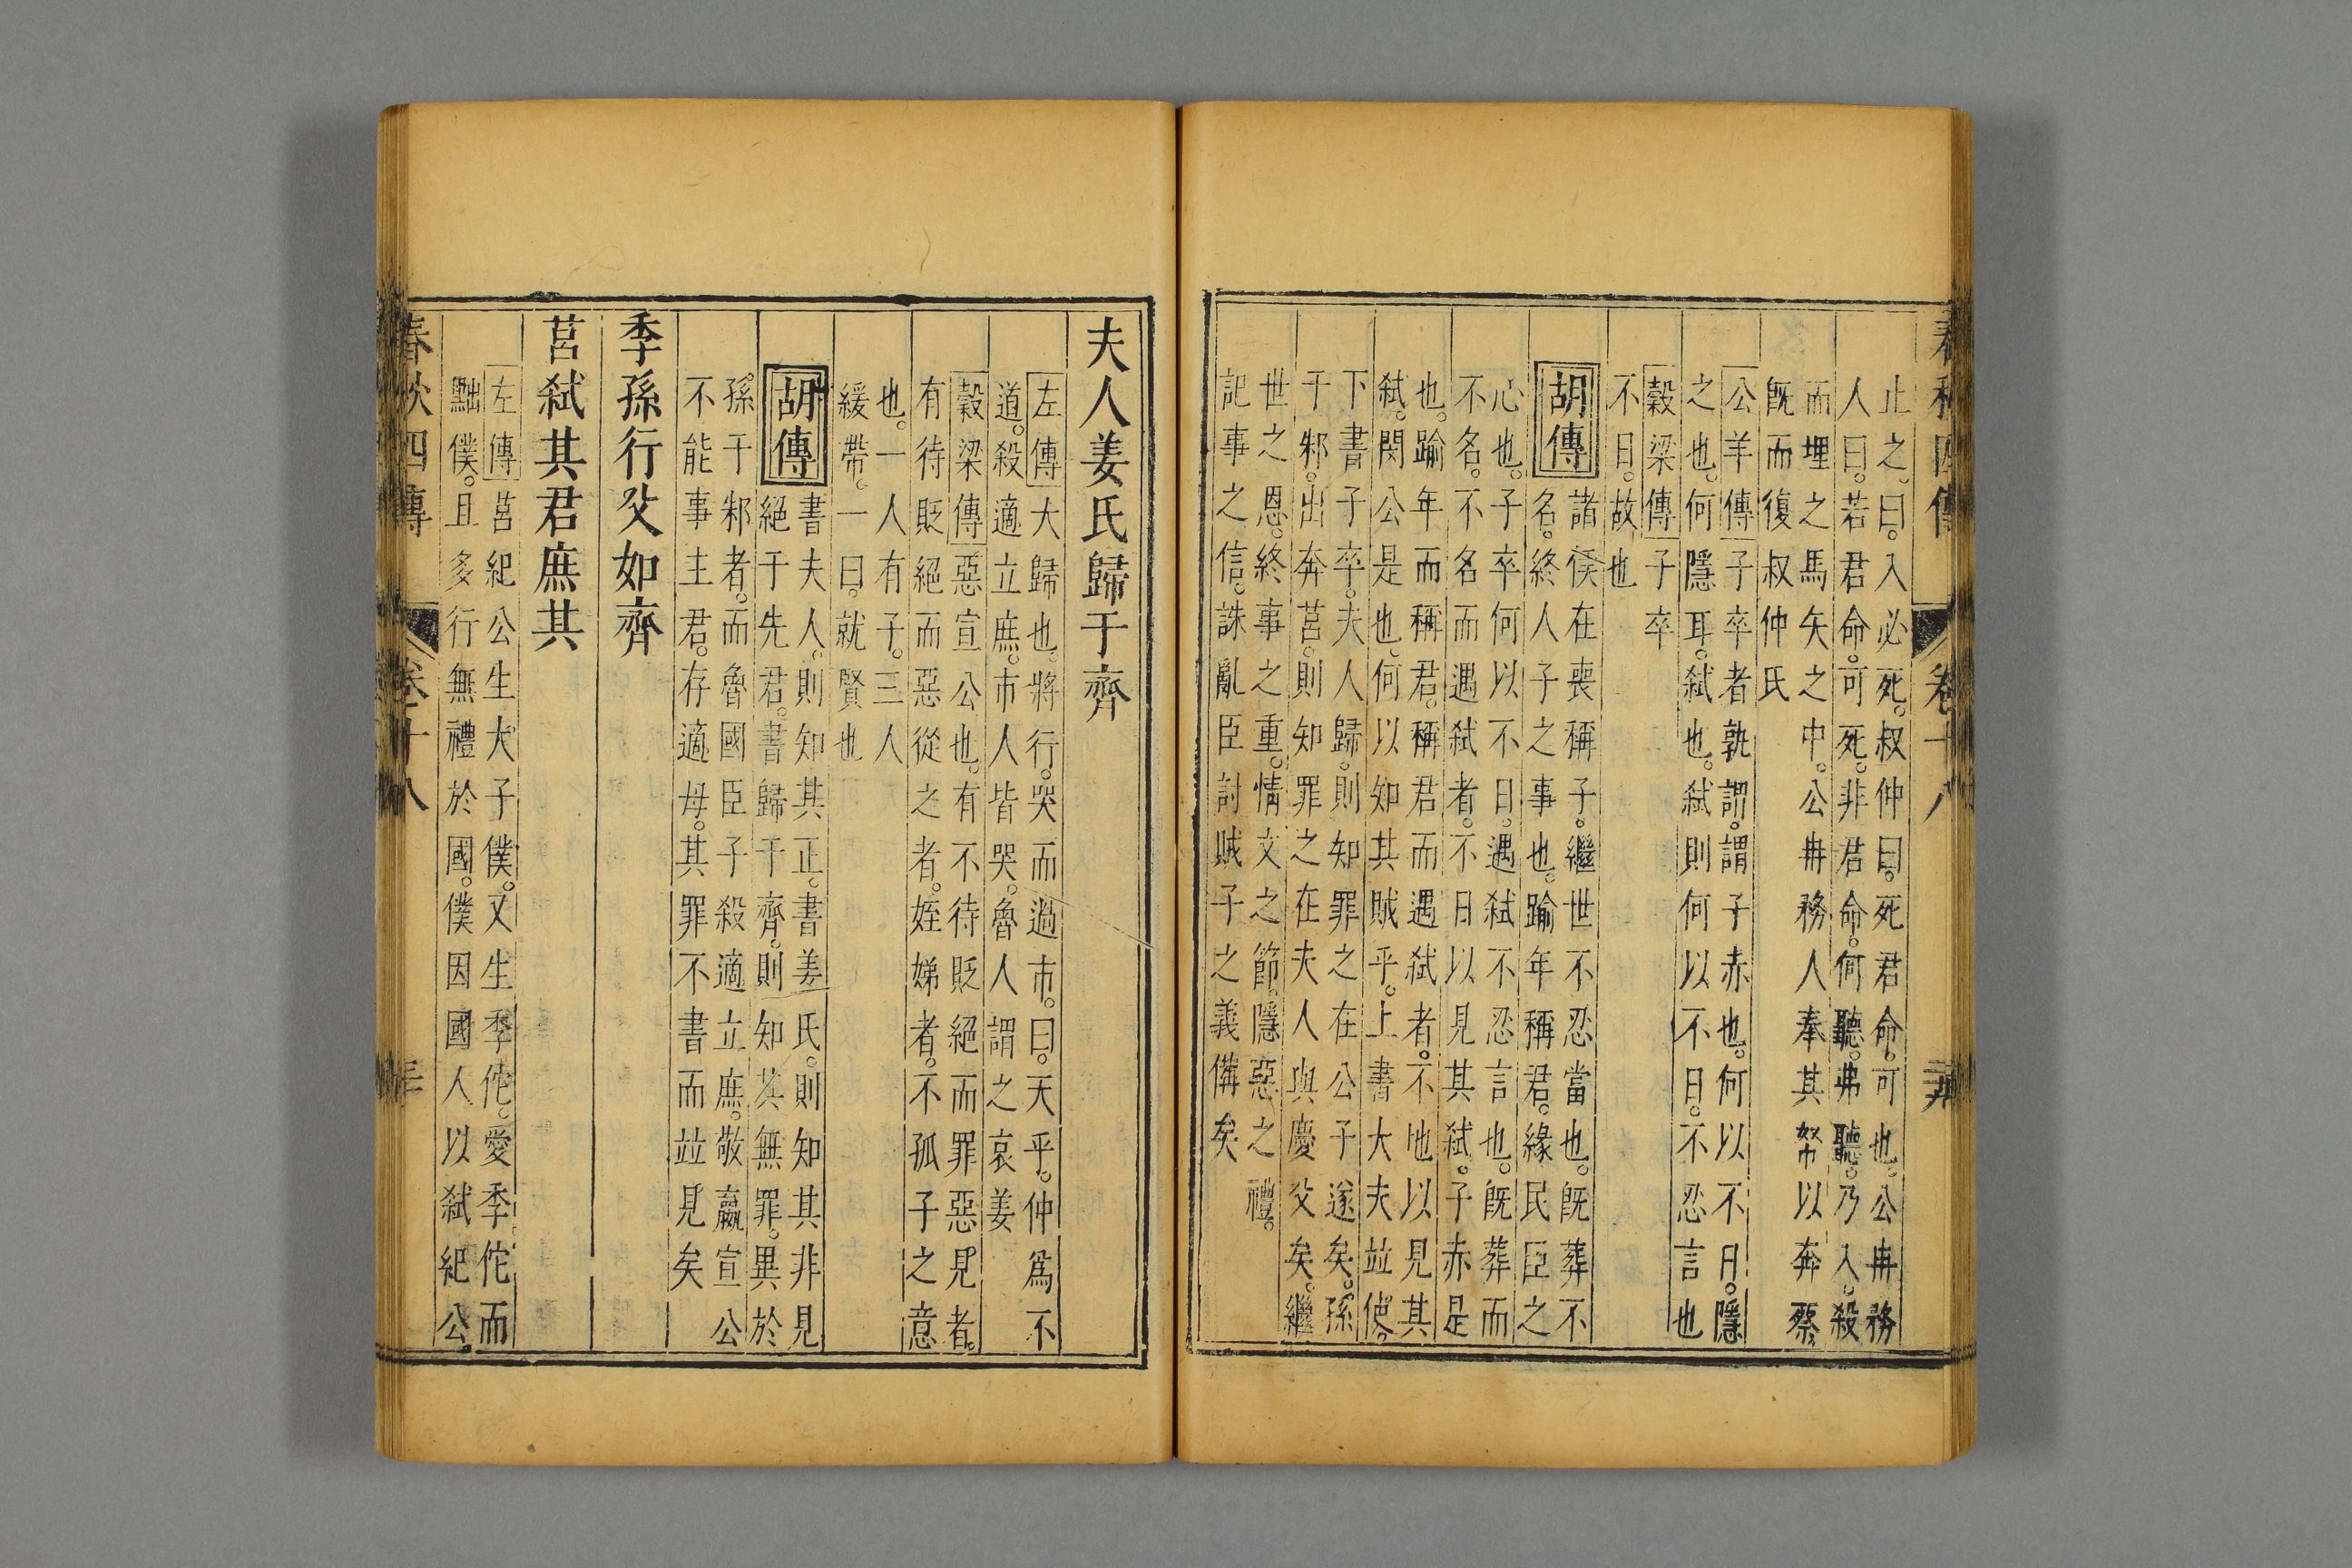 春秋四傳 卷十八
止之曰。入必死。叔仲曰。死君命。可也。公冉務
人曰。若君命。可死。非君命。何聽。弗聽。乃入。殺
而埋之馬矢之中。公冉務人奉其帑以奔蔡。
旣而復叔仲氏
公羊傳子卒者孰謂。謂子赤也。何以不日。隱
之也。何隱耳。弑也。弑則何以不日。不忍言也
穀梁傳子卒
不日。故也
胡傳
諸侯在喪稱子。繼世不忍當也。旣葬不
名。終人子之事也。踰年稱君。緣民臣之
心也。子卒何以不日。遇弑不忍言也。旣葬而
不名。不名而遇弑者。不日以見其弑。子赤是
也。踰年而稱君。稱君而遇弑者。不地以見其
弑。閔公是也。何以知其賊乎。上書大夫竝使。
下書子卒。夫人歸。則知罪之在公子遂矣。孫
于邾。出奔莒。則知罪之在夫人與慶父矣。繼
世之恩。終事之重。情文之節。隱惡之禮。
記事之信。誅亂臣討賊子之義備矣
夫人姜氏歸于齊
左傳大歸也。將行。哭而過市。曰。天乎。仲爲不
道。殺適立庶。市人皆哭。魯人謂之哀姜
穀梁傳惡宣公也。有不待貶絕而罪惡見者。
有待貶絕而惡從之者。姪娣者。不孤子之意
也。一人有子。三人
緩帶。一曰。就賢也
胡傳
書夫人。則知其正。書姜氏。則知其非見
絕于先君。書歸于齊。則知其無罪。異於
孫于邾者。而魯國臣子殺適立庶。敬嬴宣公
不能事主君。存適母。其罪不書而竝見矣
季孫行父如齊
莒弑其君庶其
左傳莒紀公生大子僕。又生季佗。愛季佗而
黜僕。且多行無禮於國。僕因國人以弑紀公。
春秋四傳 卷十八 三十